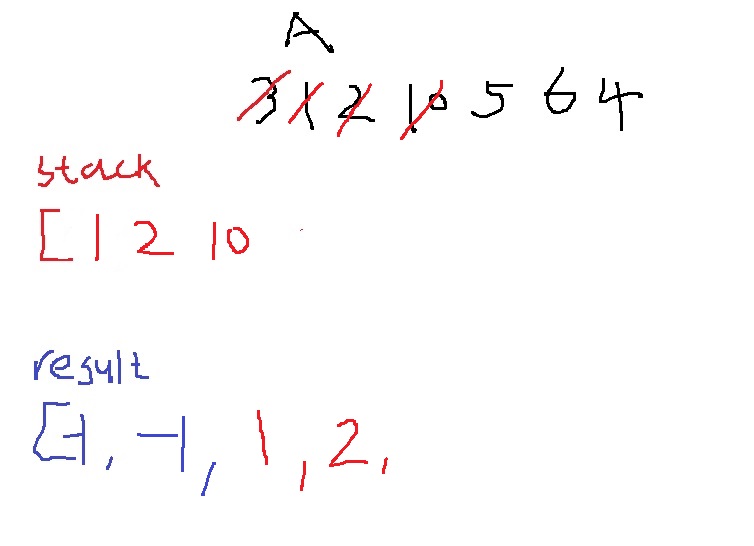 A
3 1 2 10 5 6 4
stack
[ 1 2 10
result
[-1, -1, 1, 2,